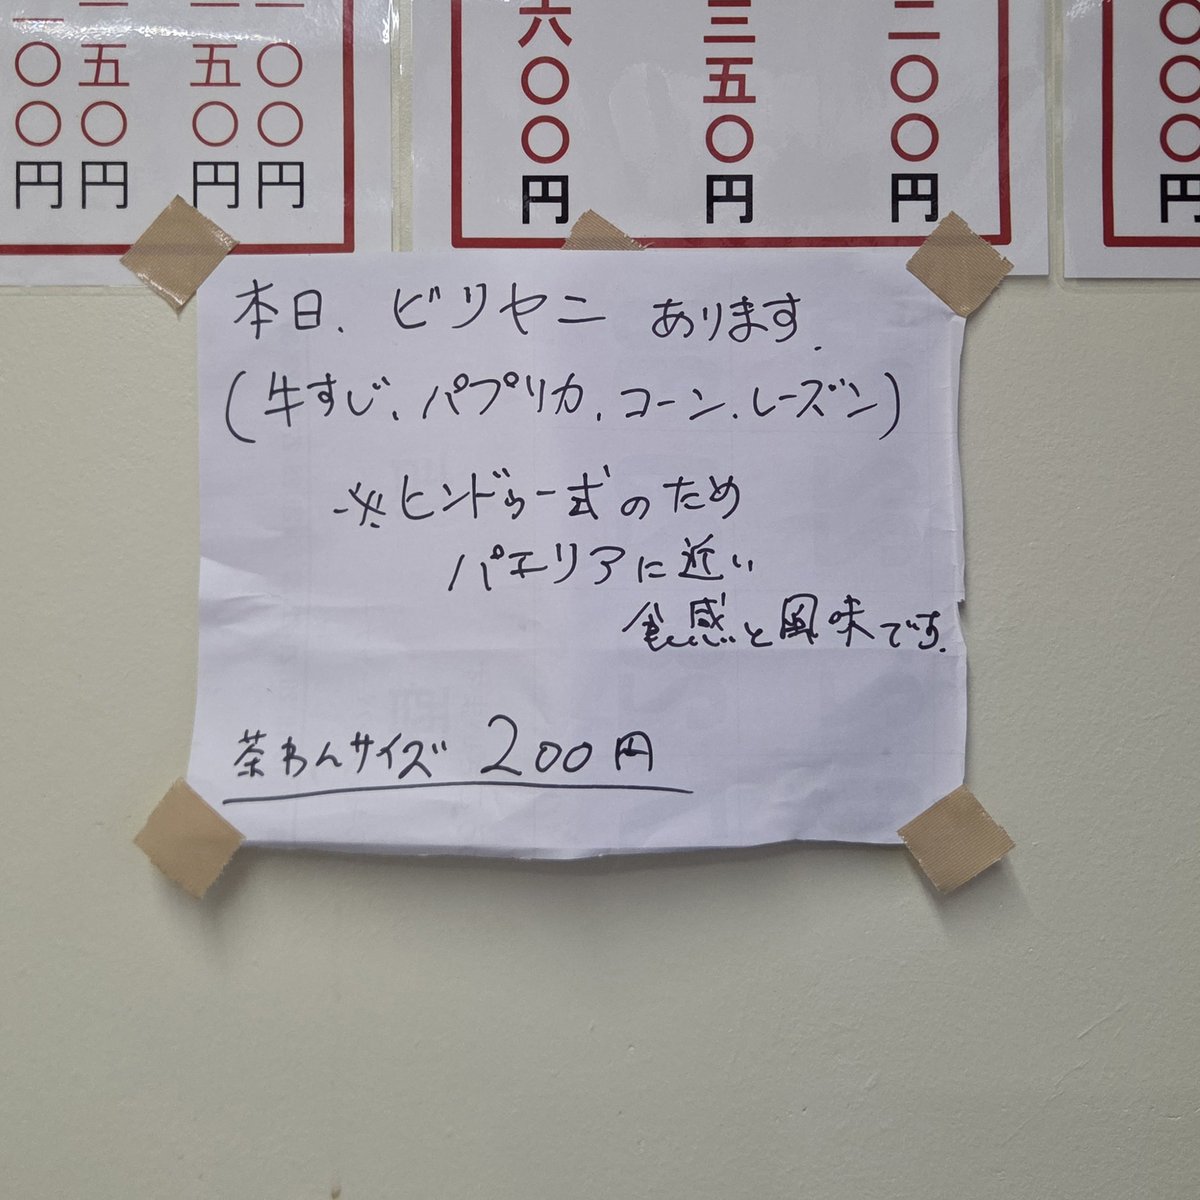 〇〇円
五〇円
五〇円
〇〇円
六〇〇円
三五〇円
二〇〇円
〇〇〇円
本日、ビリヤニ あります.
(牛すじ、パプリカ、コーン、レーズン)
※ヒンドゥー式のため
パエリアに近い
食感と風味です.
茶わんサイズ 200円